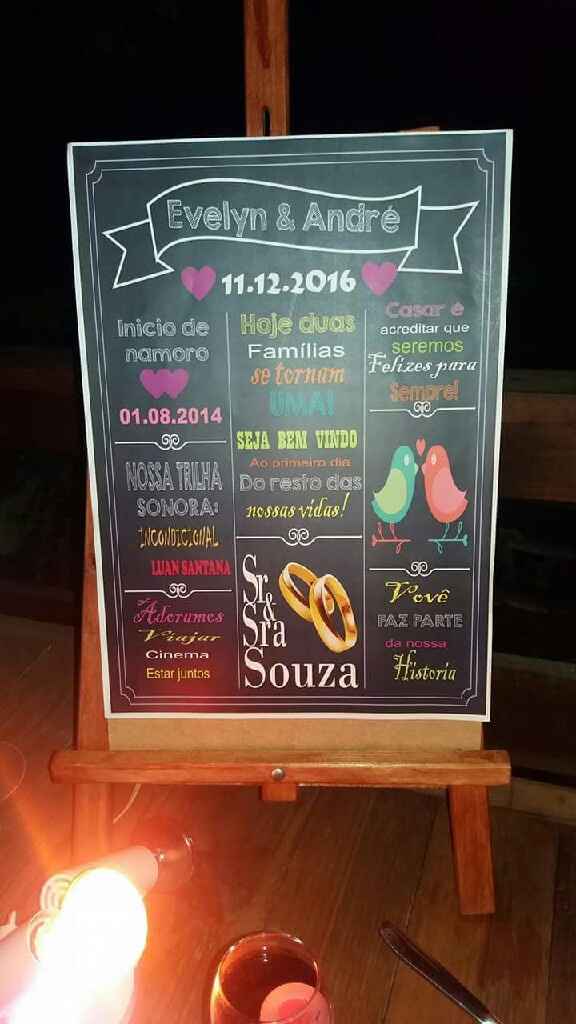 Evelyn & André
11.12.2016
Inicio de
namoro
01.08.2014
NOSSA TRILHA
SONORA:
INCONDICIONAL
LUAN SANTANA
Adoramos
Viajar
Cinema
Estar juntos
Hoje duas
Famílias
se tornam
UMA!
SEJA BEM VINDO
Ao primeiro dia
Do resto das
nossas vidas!
Sr
&
Sra
Souza
Casar é
acreditar que
seremos
Felizes para
Sempre!
Vovê
FAZ PARTE
da nossa
Historia